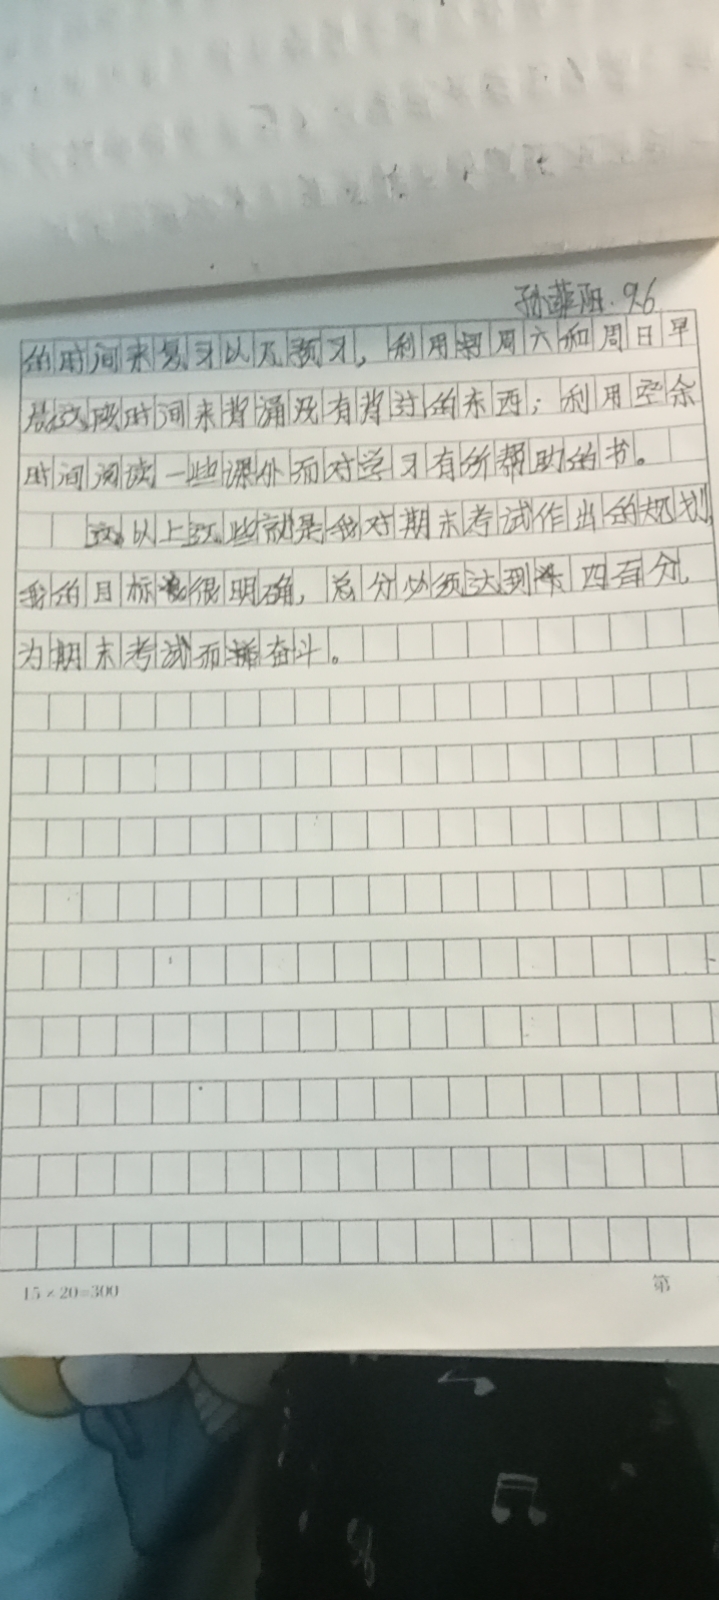 孙菲阳. 9.6
的时间来复习以及预习，利用周六和周日早
晨这段时间来背涌没有背过的东西；利用空余
时间阅读一些课外而对学习有所帮助的书。
以上这些就是我对期末考试作出的规划，
我的目标很明确，总分必须达到四百分，
为期末考试而奋斗。
15×20=300
第